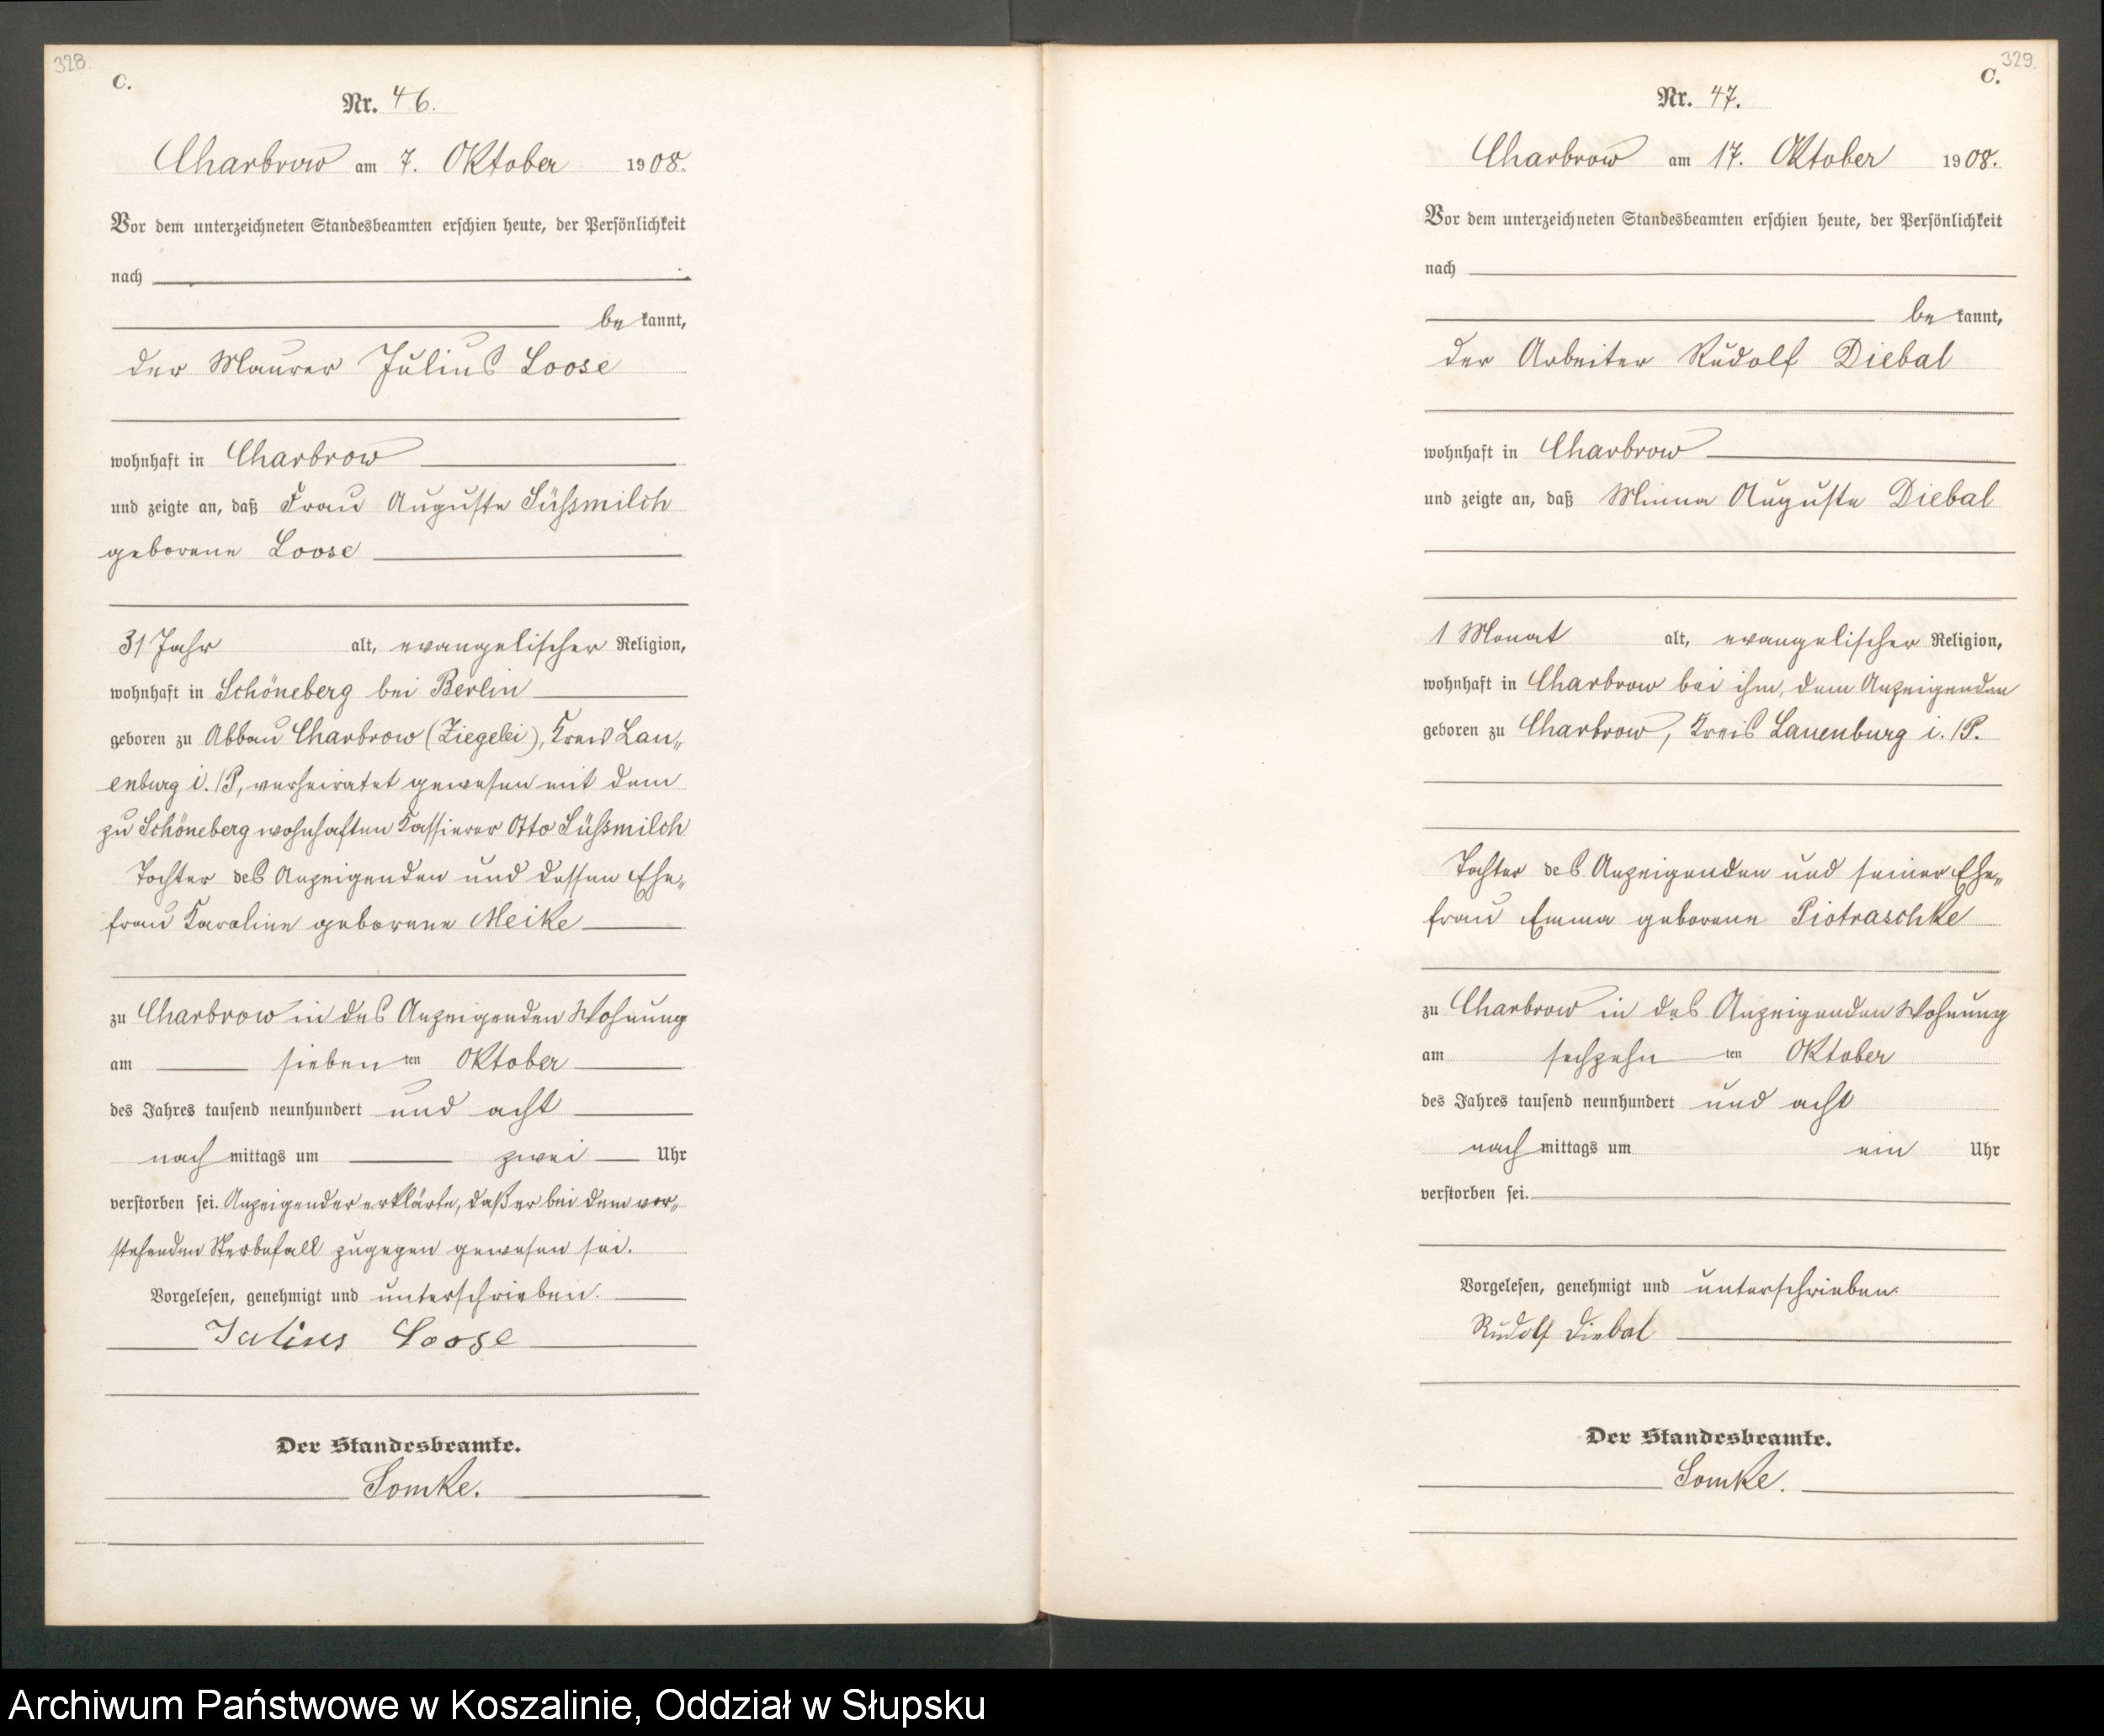 328.
C.
Nr. 46.
Charbrow am 7. Oktober 1908.
Vor dem unterzeichneten Standesbeamten erschien heute, der Persönlichkeit
nach
be kannt,
der Maurer Julius Loose
wohnhaft in Charbrow
und zeigte an, daß Frau Auguste Süßsmilch
geborene Loose
31 Jahr alt, evangelischer Religion,
wohnhaft in Schöneberg bei Berlin
geboren zu Abbau Charbrow (Ziegelei), Kreis Lau„
enburg i./P, verheiratet gewesen mit dem
zu Schöneberg wohnhaften Kassierer Otto Süßsmilch
Tochter des Anzeigenden und dessen Ehe„
frau Karoline geborene Meike
zu Charbrow in des Anzeigenden Wohnung
am sieben ten Oktober
des Jahres tausend neunhundert und acht
nach mittags um zwei Uhr
verstorben sei. Anzeigender erklärte, daß er bei dem vor„
stehenden Sterbefall zugegen gewesen sei.
Vorgelesen, genehmigt und unterschrieben.
Julius Loose
Der Standesbeamte.
Somke.
329.
C.
Nr. 47.
Charbrow am 17. Oktober 1908.
Vor dem unterzeichneten Standesbeamten erschien heute, der Persönlichkeit
nach
be kannt,
der Arbeiter Rudolf Diebal
wohnhaft in Charbrow
und zeigte an, daß Minna Auguste Diebal
1 Monat alt, evangelischer Religion,
wohnhaft in Charbrow bei ihm, dem Anzeigenden
geboren zu Charbrow, Kreis Lauenburg i./P.
Tochter des Anzeigenden und seiner Ehe„
frau Emma geborene Piotraschke
zu Charbrow in des Anzeigenden Wohnung
am sechzehn ten Oktober
des Jahres tausend neunhundert und acht
nach mittags um ein Uhr
verstorben sei.
Vorgelesen, genehmigt und unterschrieben.
Rudolf Diebal
Der Standesbeamte.
Somke.
Archiwum Państwowe w Koszalinie, Oddział w Słupsku